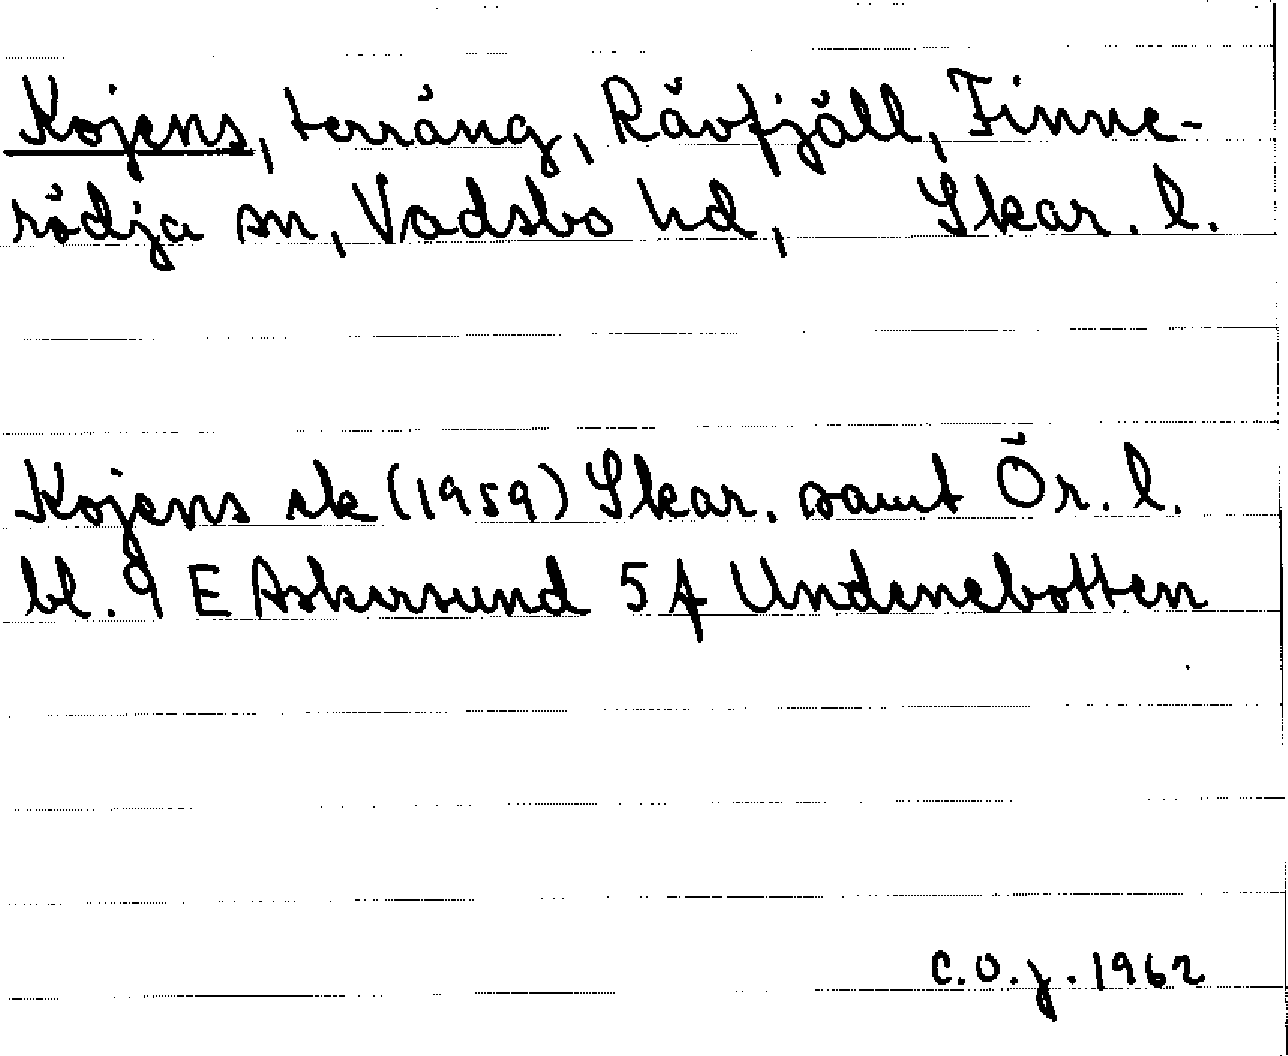 Kojens, terräng, Rävfjäll, Finne-
rödja sn, Vadsbo hd, Skar. l.
Kojens sk (1959) Skar. samt Ör. l.
bl. 9 E Askersund 5 f Undenebotten
C.O.J. 1962